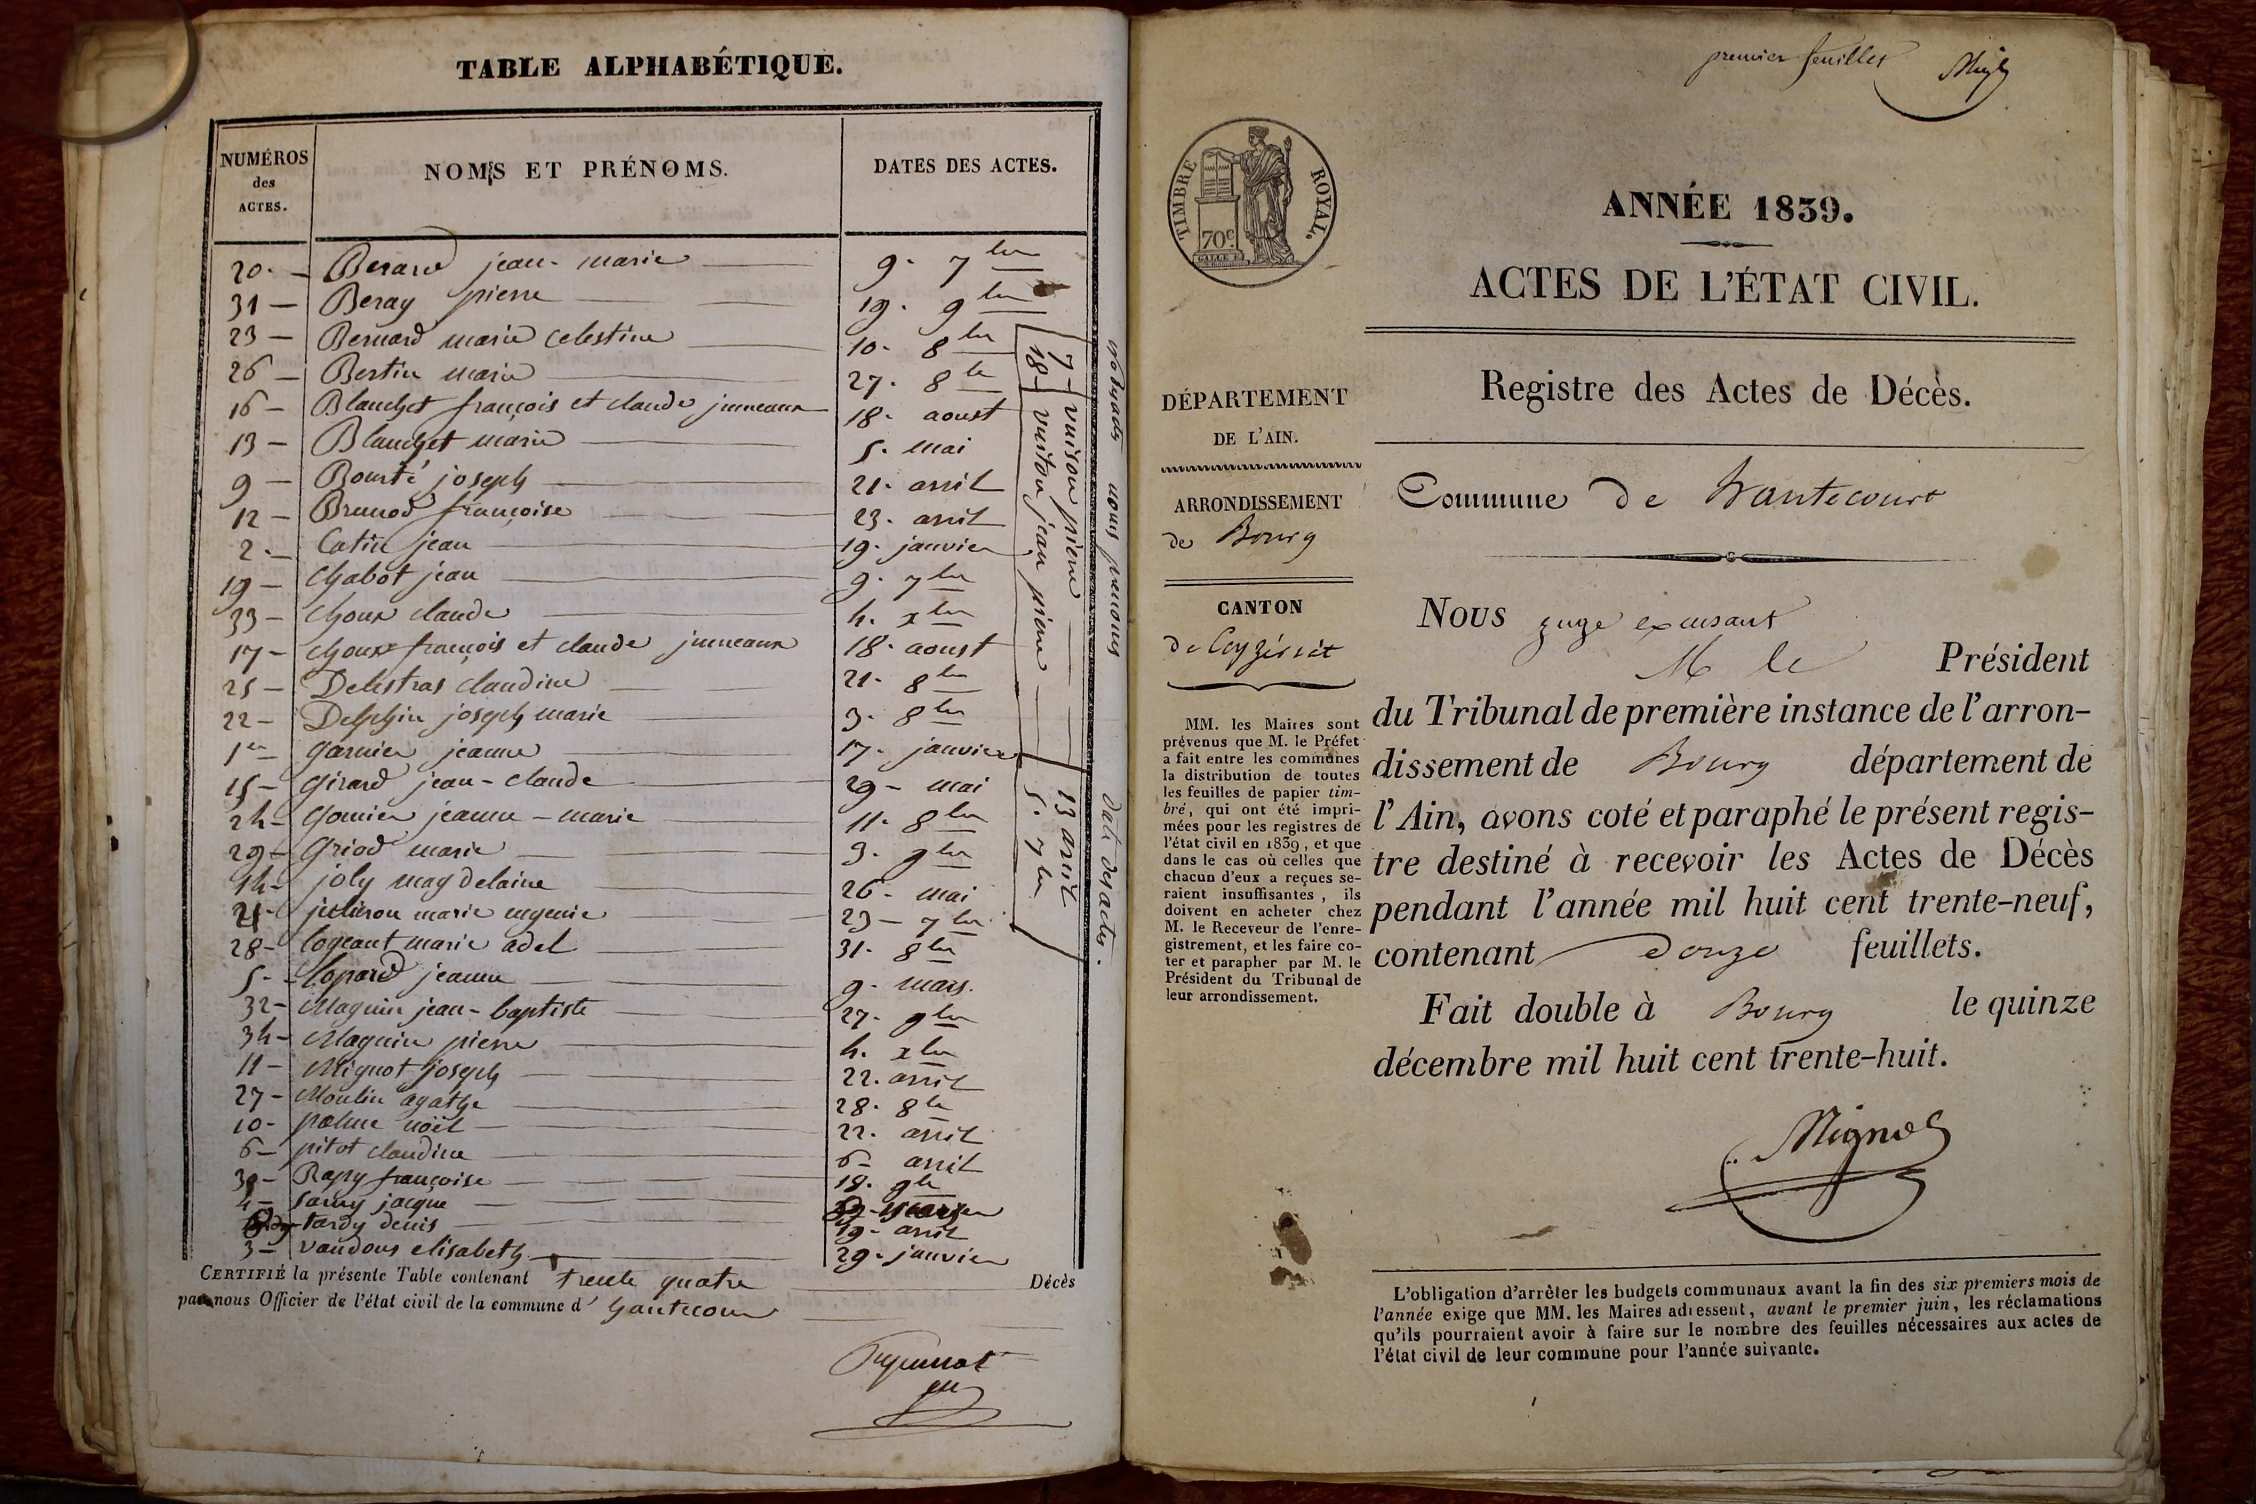 TABLE ALPHABÉTIQUE.
NUMÉROS
des
ACTES.
NOMS ET PRÉNOMS.
DATES DES ACTES.
20. — Berard jean-marie — 9. 7bre
31 — Beray pierre — 19. 9bre
23 — Bernard marie celestine — 10. 8bre
26 — Bertin marie — 27. 8bre
16 — Blanchet françois et claude jumeaux 18. aoust
13 — Blanchet marie — 5. mai
9 — Bourté joseph — 21. avril
12 — Brunod françoise — 23. avril
2. — Catin jean — 19. janvier
19 — Chabot jean — 9. 7bre
33 — Choux claude — 4. xbre
17 — Choux françois et claude jumeaux 18. aoust
25 — Delestras claudine — 21. 8bre
22 — Delphin joseph marie — 3. 8bre
1er — garnier jeanne — 17. janvier
15 — girard jean-claude — 29 — mai
24 — gomier jeanne-marie — 11. 8bre
29 — griod marie — 3. 9bre
14 — joly magdelaine — 26. mai
21 — marie eugenie — 23 — 7bre
28 — logeant marie adel — 31. 8bre
5. — lopard jeanne — 9. mars.
32 — Maguin jean-baptiste — 27. 9bre
34 — Maguin pierre — 4. xbre
11 — Mignot joseph — 22. avril
27 — Moulin agathe — 28. 8bre
10 — palme noël — 22. avril
6 — pitot claudine — 6 — avril
30 — Rapy françoise — 18. 9bre
4 — jacque
tardy denis — 19 — avril
3 — vandous elisabeth — 29. janvier
7 — vuison pierre — 13 avril
18 — vuiton jean pierre — 5. 7bre
noms prenoms
date des actes.
CERTIFIÉ la présente Table contenant trente quatre Décès
par nous Officier de l'état civil de la commune d' hautecour
premier feuillet
TIMBRE ROYAL.
70c
ANNÉE 1839.
ACTES DE L'ÉTAT CIVIL.
Registre des Actes de Décès.
Commune de hautecourt
DÉPARTEMENT
DE L'AIN.
ARRONDISSEMENT
de Bourg
CANTON
de Ceyzériat
MM. les Maires sont
prévenus que M. le Préfet
a fait entre les communes
la distribution de toutes
les feuilles de papier tim-
bré, qui ont été impri-
mées pour les registres de
l'état civil en 1839, et que
dans le cas où celles que
chacun d'eux a reçues se-
raient insuffisantes, ils
doivent en acheter chez
M. le Receveur de l'enre-
gistrement, et les faire co-
ter et parapher par M. le
Président du Tribunal de
leur arrondissement.
NOUS juge excusant
M le Président
du Tribunal de première instance de l'arron-
dissement de Bourg département de
l'Ain, avons coté et paraphé le présent regis-
tre destiné à recevoir les Actes de Décès
pendant l'année mil huit cent trente-neuf,
contenant douze feuillets.
Fait double à Bourg le quinze
décembre mil huit cent trente-huit.
L'obligation d'arrêter les budgets communaux avant la fin des six premiers mois de
l'année exige que MM. les Maires adressent, avant le premier juin, les réclamations
qu'ils pourraient avoir à faire sur le nombre des feuilles nécessaires aux actes de
l'état civil de leur commune pour l'année suivante.